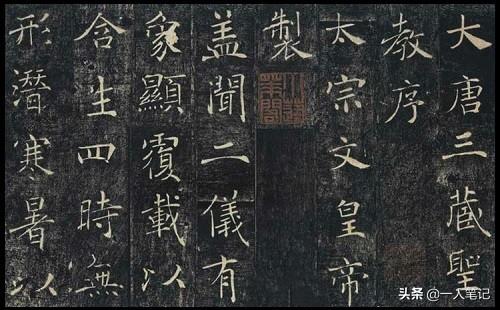 大唐三藏聖
教序
太宗文皇帝
製
盖聞二儀有
象顯覆載以
含生四時無
形潛寒暑以
头条 @一人笔记